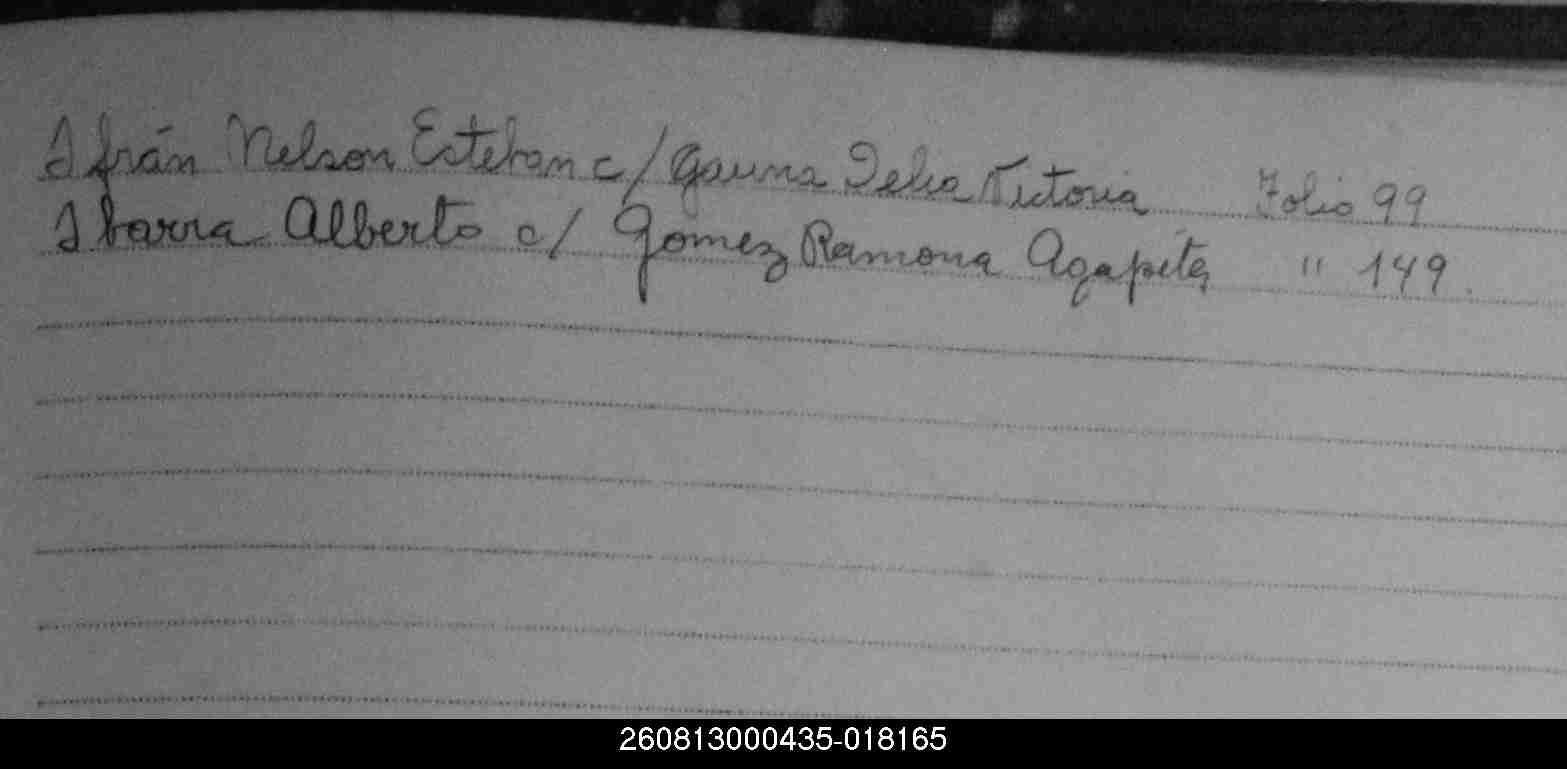 Ifrán Nelson Esteban c/ Gauna Delia Victoria Folio 99
Ibarra Alberto c/ Gomez Ramona Agapita " 149.
260813000435-018165